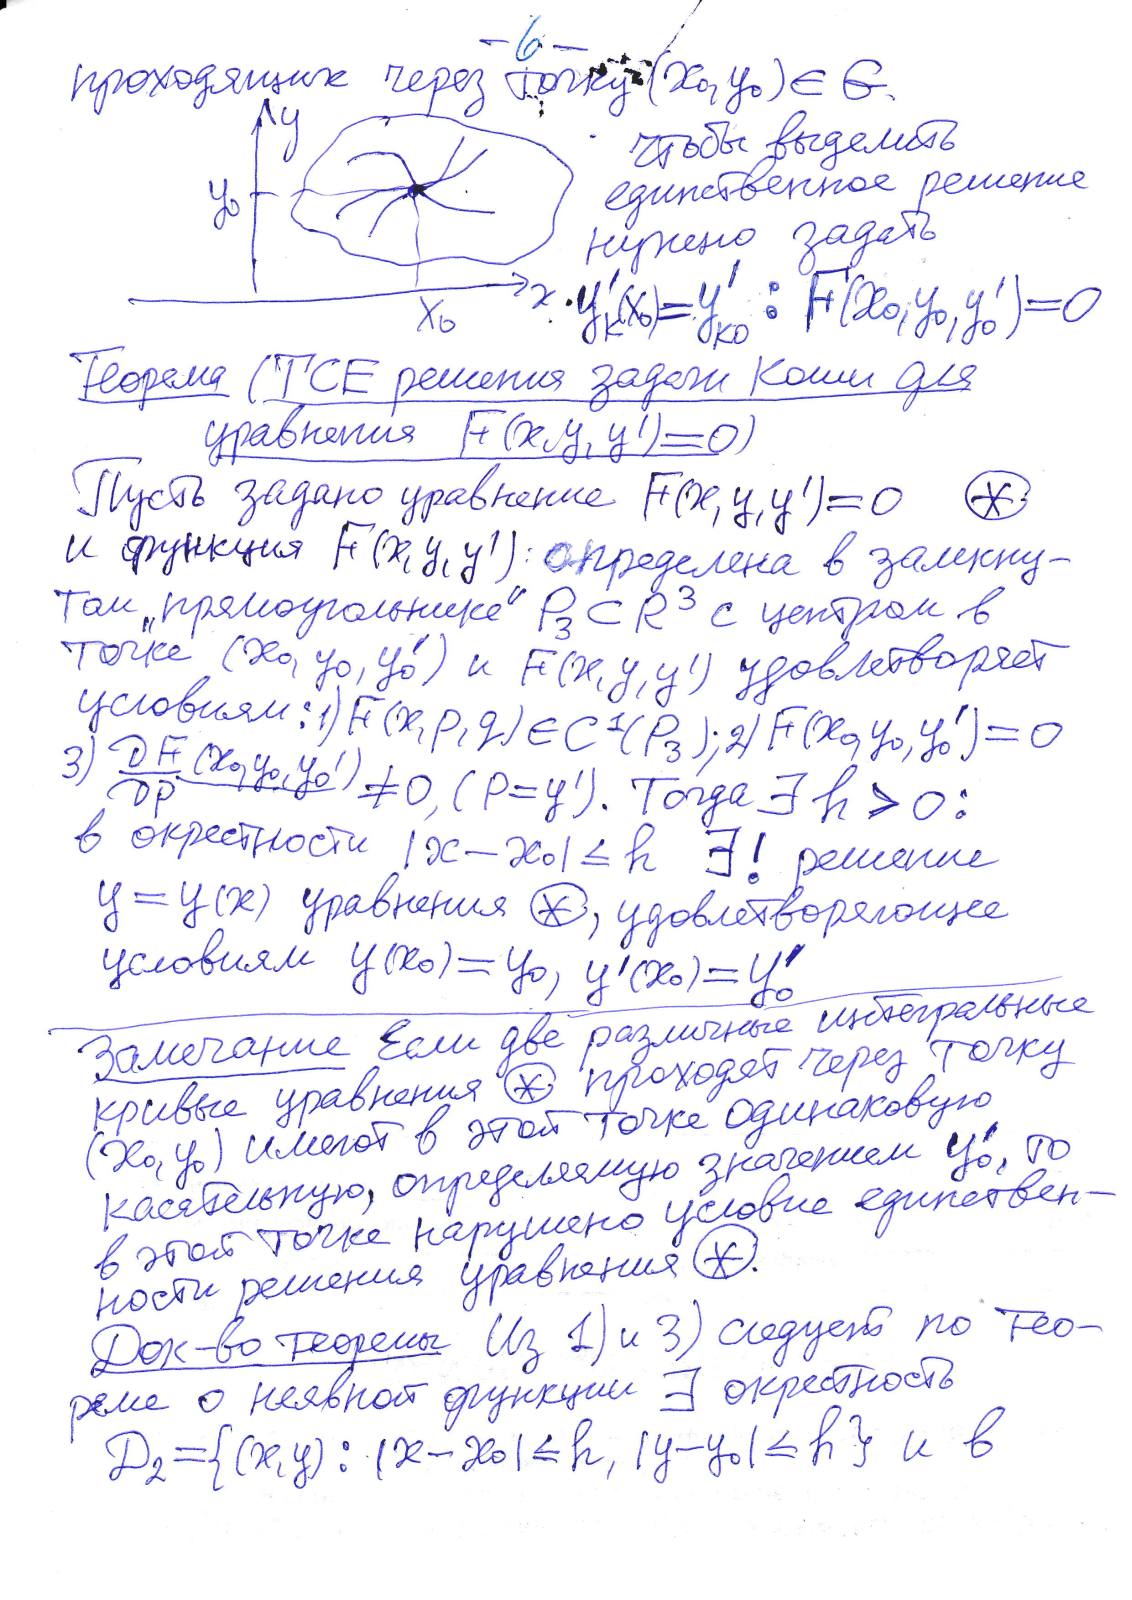 - 6 -
проходящих через точку (x₀, y₀) ∈ G.
y
y₀
x
x₀
чтобы выделить
единственное решение
нужно задать
y'ₖ(x₀) = y'ₖ₀ : F(x₀, y₀, y₀') = 0
Теорема (ТСЕ решения задачи Коши для
уравнения F(x, y, y') = 0)
Пусть задано уравнение F(x, y, y') = 0 (*)
и функция F(x, y, y') : определена в замкну-
том „прямоугольнике" P₃ ⊂ R³ с центром в
точке (x₀, y₀, y₀') и F(x, y, y') удовлетворяет
условиям: 1) F(x, p, q) ∈ C¹(P₃); 2) F(x₀, y₀, y₀') = 0
3) DF(x₀, y₀, y₀')/Dp ≠ 0, (p = y'). Тогда ∃ h > 0 :
в окрестности |x - x₀| ≤ h ∃! решение
y = y(x) уравнения (*), удовлетворяющее
условиям y(x₀) = y₀, y'(x₀) = y₀'
Замечание Если две различные интегральные
кривые уравнения (*) проходят через точку
(x₀, y₀) имеют в этой точке одинаковую
касательную, определяемую значением y₀', то
в этой точке нарушено условие единствен-
ности решения уравнения (*).
Док-во теоремы Из 1) и 3) следует по тео-
реме о неявной функции ∃ окрестность
D₂ = {(x, y) : |x - x₀| ≤ h, |y - y₀| ≤ h} и в